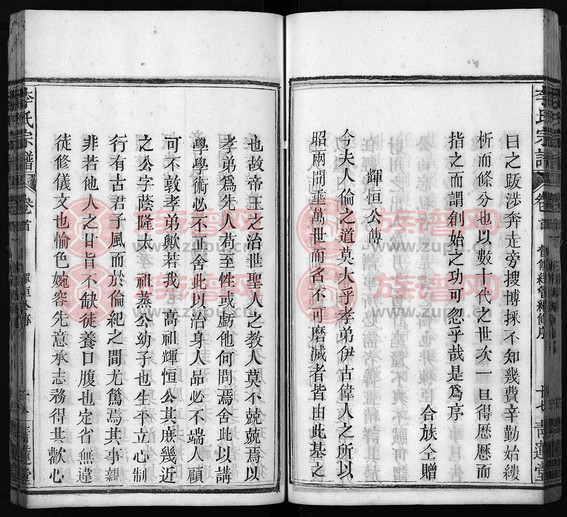 李氏宗譜
卷首
曰之跋涉奔走旁搜博採不知幾費辛勤始縷
析而條分也以數十代之世次一旦得歷歷而
指之而謂創始之功可忽乎哉是爲序
合族仝贈
輝恒公傳
今夫人倫之道莫大乎孝弟伊古偉人之所以
昭兩間垂萬世而名不可磨滅者皆由此基之
青蓮堂
也故帝王之治世聖人之教人莫不兢兢焉以
孝弟爲先人苟至性或虧他何問焉舍此以講
學學術必不正舍此以治身人品必不端人顧
可不敦孝弟歟若我高祖輝恒公其庶幾近
之公字蔭隆太祖蒸公幼子也生平立心制
行有古君子風而於倫紀之間尤篤焉其事親
非若他人之甘旨不缺徒養口腹也定省無違
徒修儀文也愉色婉容先意承志務得其歡心
李氏宗譜
卷首
青蓮堂
族谱网
www.zupu.cn